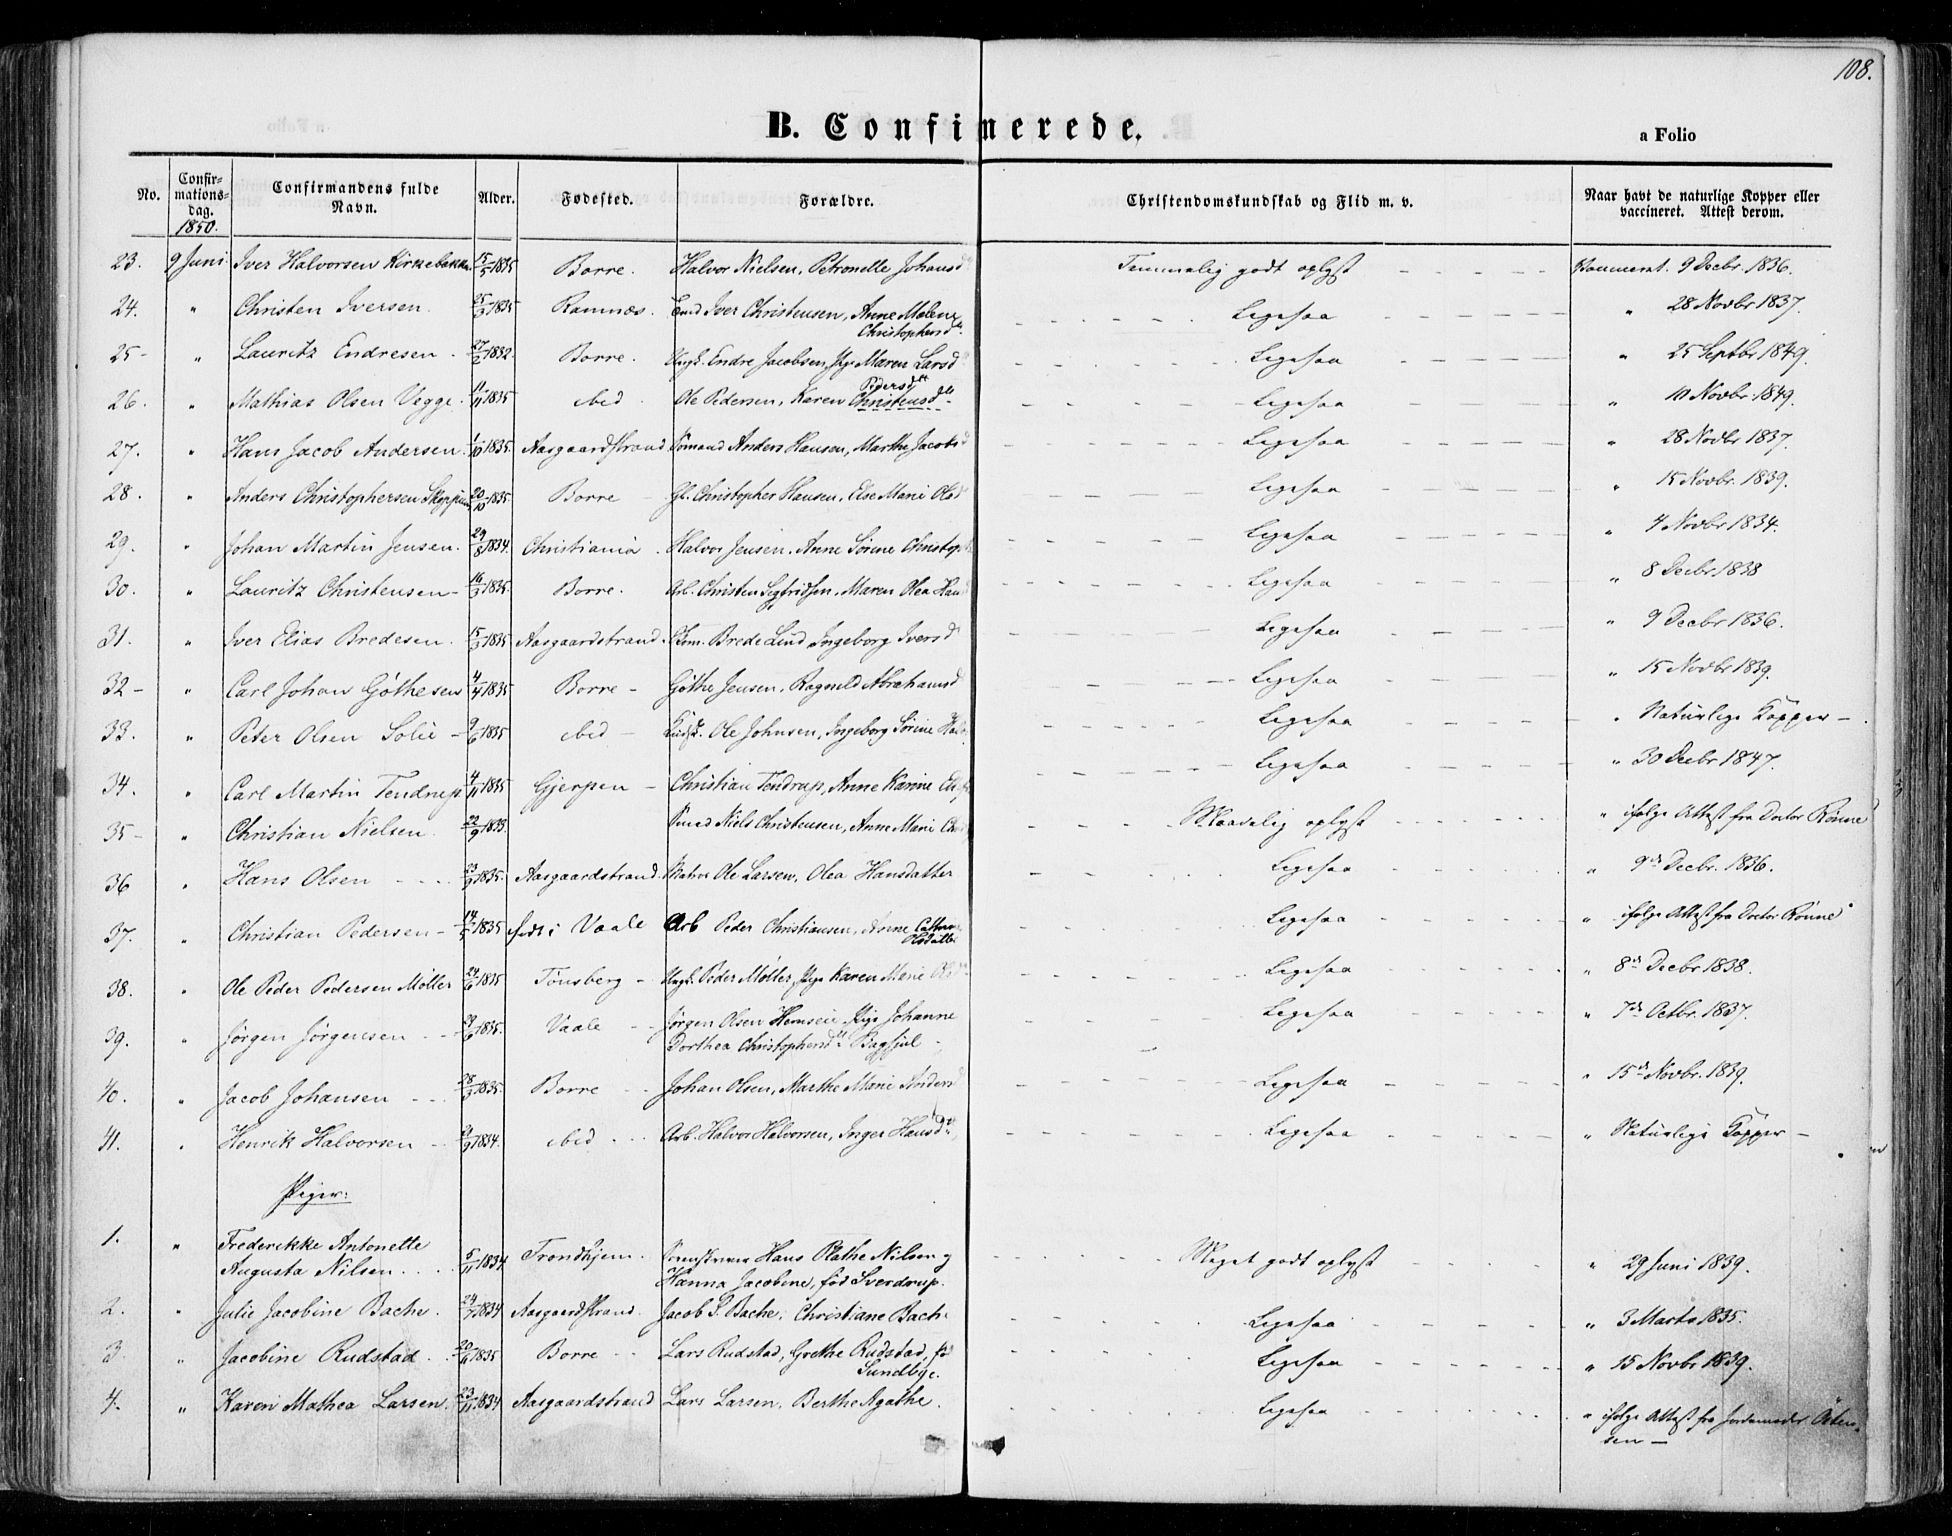 108.
B. Confirmerede.
a Folio
No. Confirmationsdag. Confirmandens fulde Navn. Alder. Fødested. Forældre. Christendomskundskab og Flid m. v. Naar havt de naturlige Kopper eller vaccineret. Attest derom.
1850.
23. 9 Juni Iver Halvorsen Kirkebakken 15/5 1835 Borre. Halvor Nielsen, Petronelle Johansd Temmelig godt oplyst 9 Decbr. 1836.
24. " Christen Iversen. 25/3 1835 Ramnæs. Iver Christensen, Anne Malene Christophersd Ligesaa " 28 Novbr 1837.
25 " Lauritz Endresen 27/2 1832. Borre. Ungk. Endre Jacobsen, Pige Maren Larsd Ligesaa " 25 Septbr 1849.
26. " Mathias Olsen Vegge. 11/11 1835 ibid Ole Pedersen, Karen Christensd Pedersd Ligesaa " 10 Novbr. 1849.
27. " Hans Jacob Andersen. 1/10 1835. Aasgaardstrand Sømand Anders Hansen, Marthe Jacobsd Ligesaa " 28 Novbr 1837.
28. " Anders Christophersen Skoppum 20/10 1835 Borre Gl. Christopher Hansen, Else Marie Olsd Ligesaa " 15 Novbr. 1839.
29. " Johan Martin Jensen. 29/8 1834. Christiania. Halvor Jensen, Anne Sørine Christoph Ligesaa " 4 Novbr 1834.
30. " Lauritz Christensen 16/3 1835. Borre. Arb. Christen Sigfridsen, Maren Olea Hans Ligesaa " 8 Decbr 1838
31. " Iver Elias Bredesen. 15/3 1835 Aasgaardstrand. Brede Lund, Ingeborg Iversd Ligesaa " 9 Decbr 1836.
32 " Carl Johan Gøthesen 4/4 1835 Borre Gøthe Jensen, Ragnild Abrahamsd Ligesaa " 15 Novbr 1839.
33. " Peter Olsen Solie 9/6 1835 ibid Ole Johnsen, Ingeborg Sørine Ligesaa " Naturlige Kopper
34. " Carl Martin Tendrup 4/11 1835 Gjerpen Christian Tendrup, Anne Karine Ligesaa " 30 Decbr 1847.
35 " Christian Nielsen. 22/9 1833. Smed Niels Christensen, Anne Marie Maadelig oplyst " ifølge Attest fra Doctor Rønne
36 " Hans Olsen 1835. Aasgaardstrand. Matros Ole Larsen, Olea Hansdatter Ligesaa " 9de Decbr. 1836.
37. " Christian Pedersen 1835 født i Vaale Arb Peder Christiansen, Anne Olsdatter Ligesaa " ifølge Attest fra Doctor Rønne
38. " Ole Peder Pedersen Møller 24/6 1835 Tønsberg Ungk. Peder Møller, Pige Karen Marie Ligesaa " 8de Decbr 1838.
39. " Jørgen Jørgensen 1835. Vaale Jørgen Olsen, Pige Johanne Dorthea Christophersd Ligesaa " 7de Octbr. 1837.
40. " Jacob Johansen 28/3 1835. Borre Johan Olsen, Marthe Marie Andersd Ligesaa " 15de Novbr. 1839.
41. " Henrik Halvorsen 1834. ibid Arb. Halvor Halvorsen, Inger Hansd Ligesaa " Naturlige Kopper
Piger:
1. " Frederikke Antonette
Augusta Nilsen 5/11 1834 Trondhjem. Hans Rathe Nilsen og Meget godt oplyst " 29 Juni 1839.
Hanna Jacobine, fød Sverdrup.
2. " Julie Jacobine Bache. 24/7 1834 Aasgaardstrand. Jacob S. Bache, Christiane Bach Ligesaa " 3 Marts 1835.
3 " Jacobine Rudstad 1835 Borre Lars Rudstad, Grethe Rudstad, fød Ligesaa " 15 Novbr 1839.
Sundbye.
4. " Karen Mathea Larsen. 23/11 1834 Aasgaardstrand Lars Larsen, Berthe Agathe. Ligesaa " ifølge Attest fra Jordemoder Østen-
sen